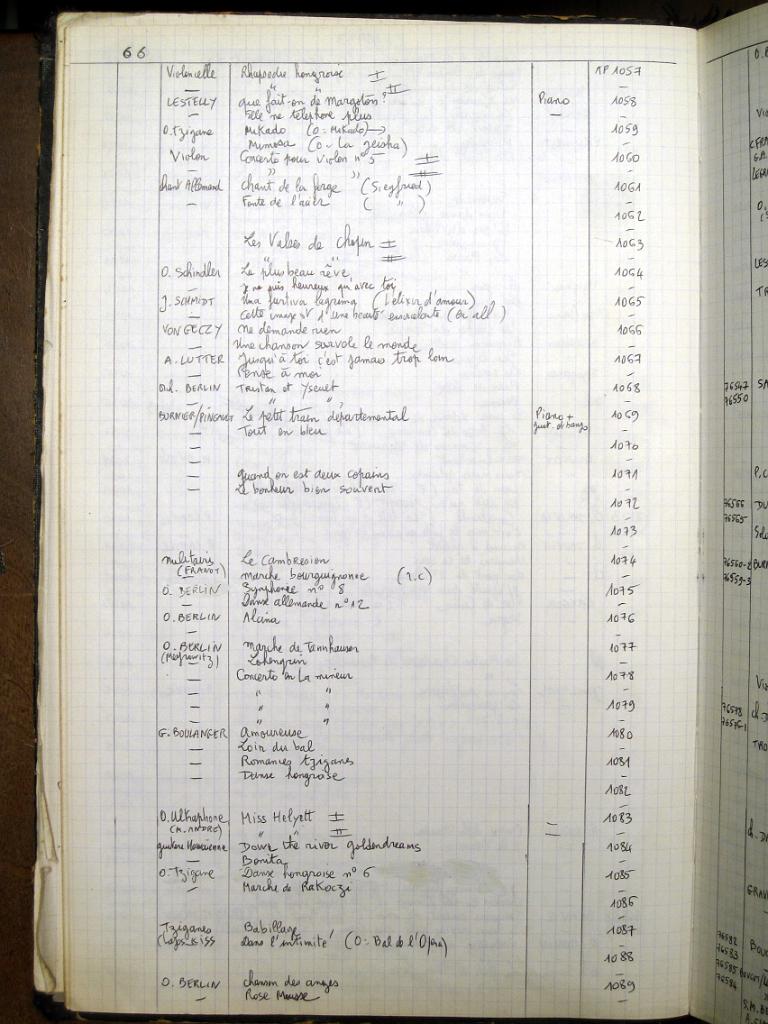 66
Violoncelle Rhapsodie hongroise I AP 1057
— " " II —
LESTELLY que fait-on de Margoton? Piano 1058
— Elle ne téléphone plus — —
O. Tzigane Mikado (O = Mikado) 1059
— Mimosa (O = La geisha) —
Violon Concerto pour violon n° 5 I 1060
— " " II —
Chant Allemand Chant de la forge (Siegfried) 1061
— Fonte de l'acier ( " ) —
1062
—
Les Valses de Chopin I 1063
" " II —
O. Schindler Le plus beau rêve 1064
— Je ne suis heureux qu'avec toi —
J. SCHMIDT Una furtiva lagrima (L'elixir d'amour) 1065
— Cette image est d'une beauté (en all) —
VON GECZY Ne demande rien 1066
— Une chanson survole le monde —
A. LUTTER Jusqu'à toi c'est jamais trop loin 1067
— Pense à moi —
Orch. BERLIN Tristan et Yseult 1068
— " " —
BURNIER/PINGAULT Le petit train départemental Piano + 1069
— Tout en bleu —
— 1070
— —
— quand on est deux copains 1071
— Le bonheur bien souvent —
1072
—
1073
—
Militaire Le Cambresien 1074
(FRANOT) marche bourguignonne (1.c) —
O. BERLIN Symphonie n° 8 1075
— Danse allemande n° 12 —
O. BERLIN Alcina 1076
—
O. BERLIN Marche de Tannhauser 1077
(Meyrowitz) Lohengrin —
— Concerto en La mineur 1078
— " " —
— " " 1079
— " " —
G. BOULANGER Amoureuse 1080
— Loin du bal —
— Romances tziganes 1081
— Danse hongroise —
1082
—
O. Ultraphone Miss Helyett I = 1083
(M. ANDRE) " " II —
guitare Hawaienne Down the river goldendreams 1084
— Bonita —
O. Tzigane Danse hongroise n° 6 1085
— Marche de Rakoczi —
1086
—
Tziganes Babillage 1087
(Lajos KISS Dans l'intimité (O = Bal de l'Opéra) —
1088
—
O. BERLIN chanson des anges 1089
— Rose Mousse —
76547
76550
76566
76565
76560-2
76559-3
76578
76576-1
76582
76583
76585
76584